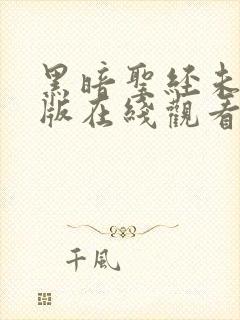 黑暗聖經未
版在綫觀看
千風